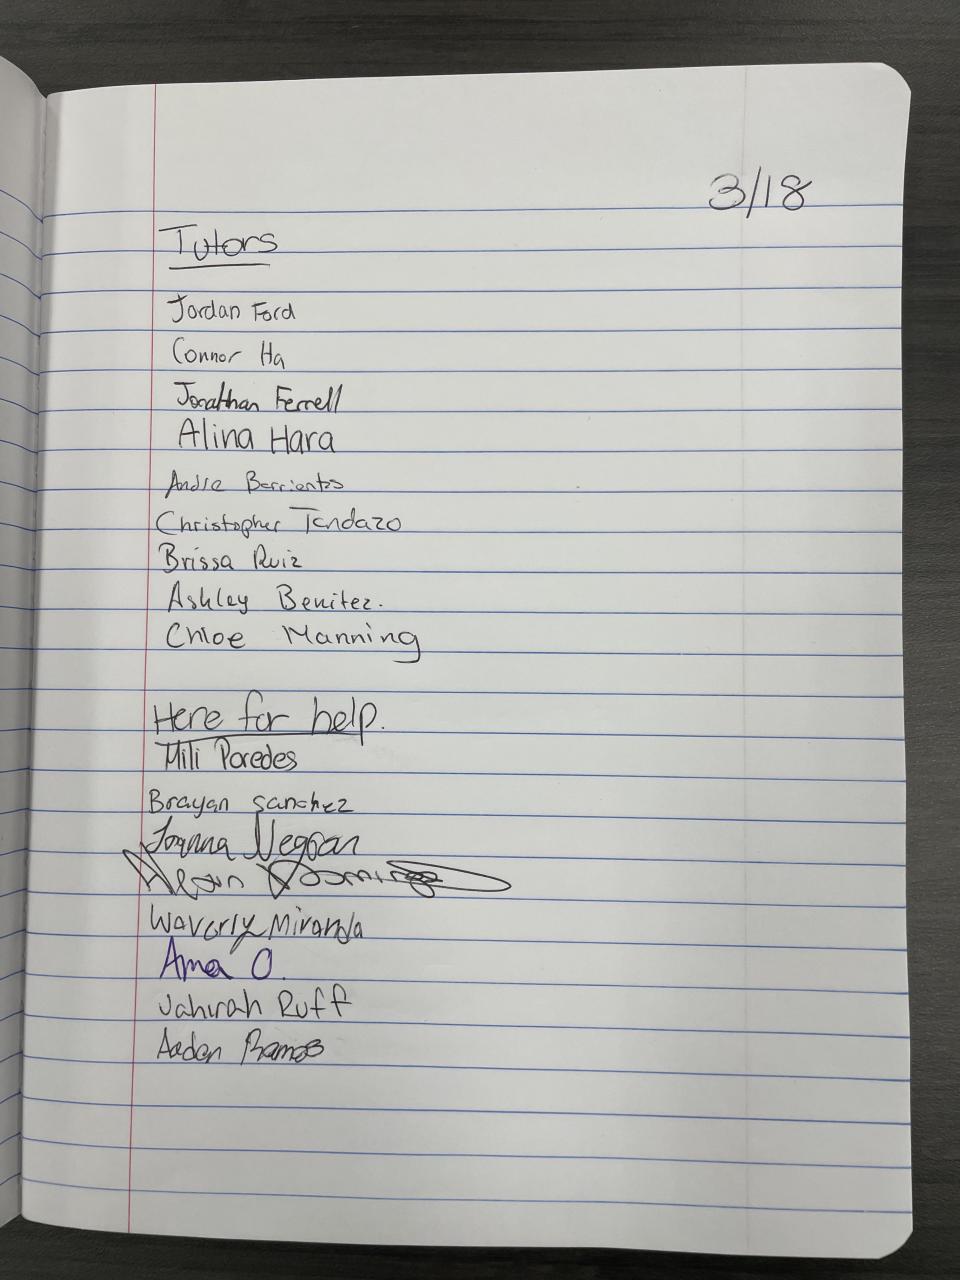 3/18
Tutors
Jordan Ford
Connor Ha
Jonathan Ferrell
Alina Hara
Andre Barrientos
Christopher Tandazo
Brissa Ruiz
Ashley Benitez.
Chloe Manning
Here for help.
Mili Paredes
Brayan Sanchez
Joanna Negoan
Waverly Miranda
Ama O.
Jahirah Ruff
Aedan Ramos